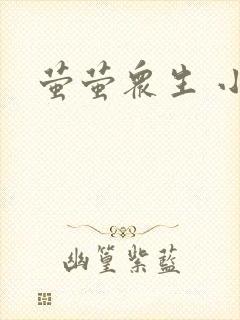 萤萤众生 小
幽篁紫蓝